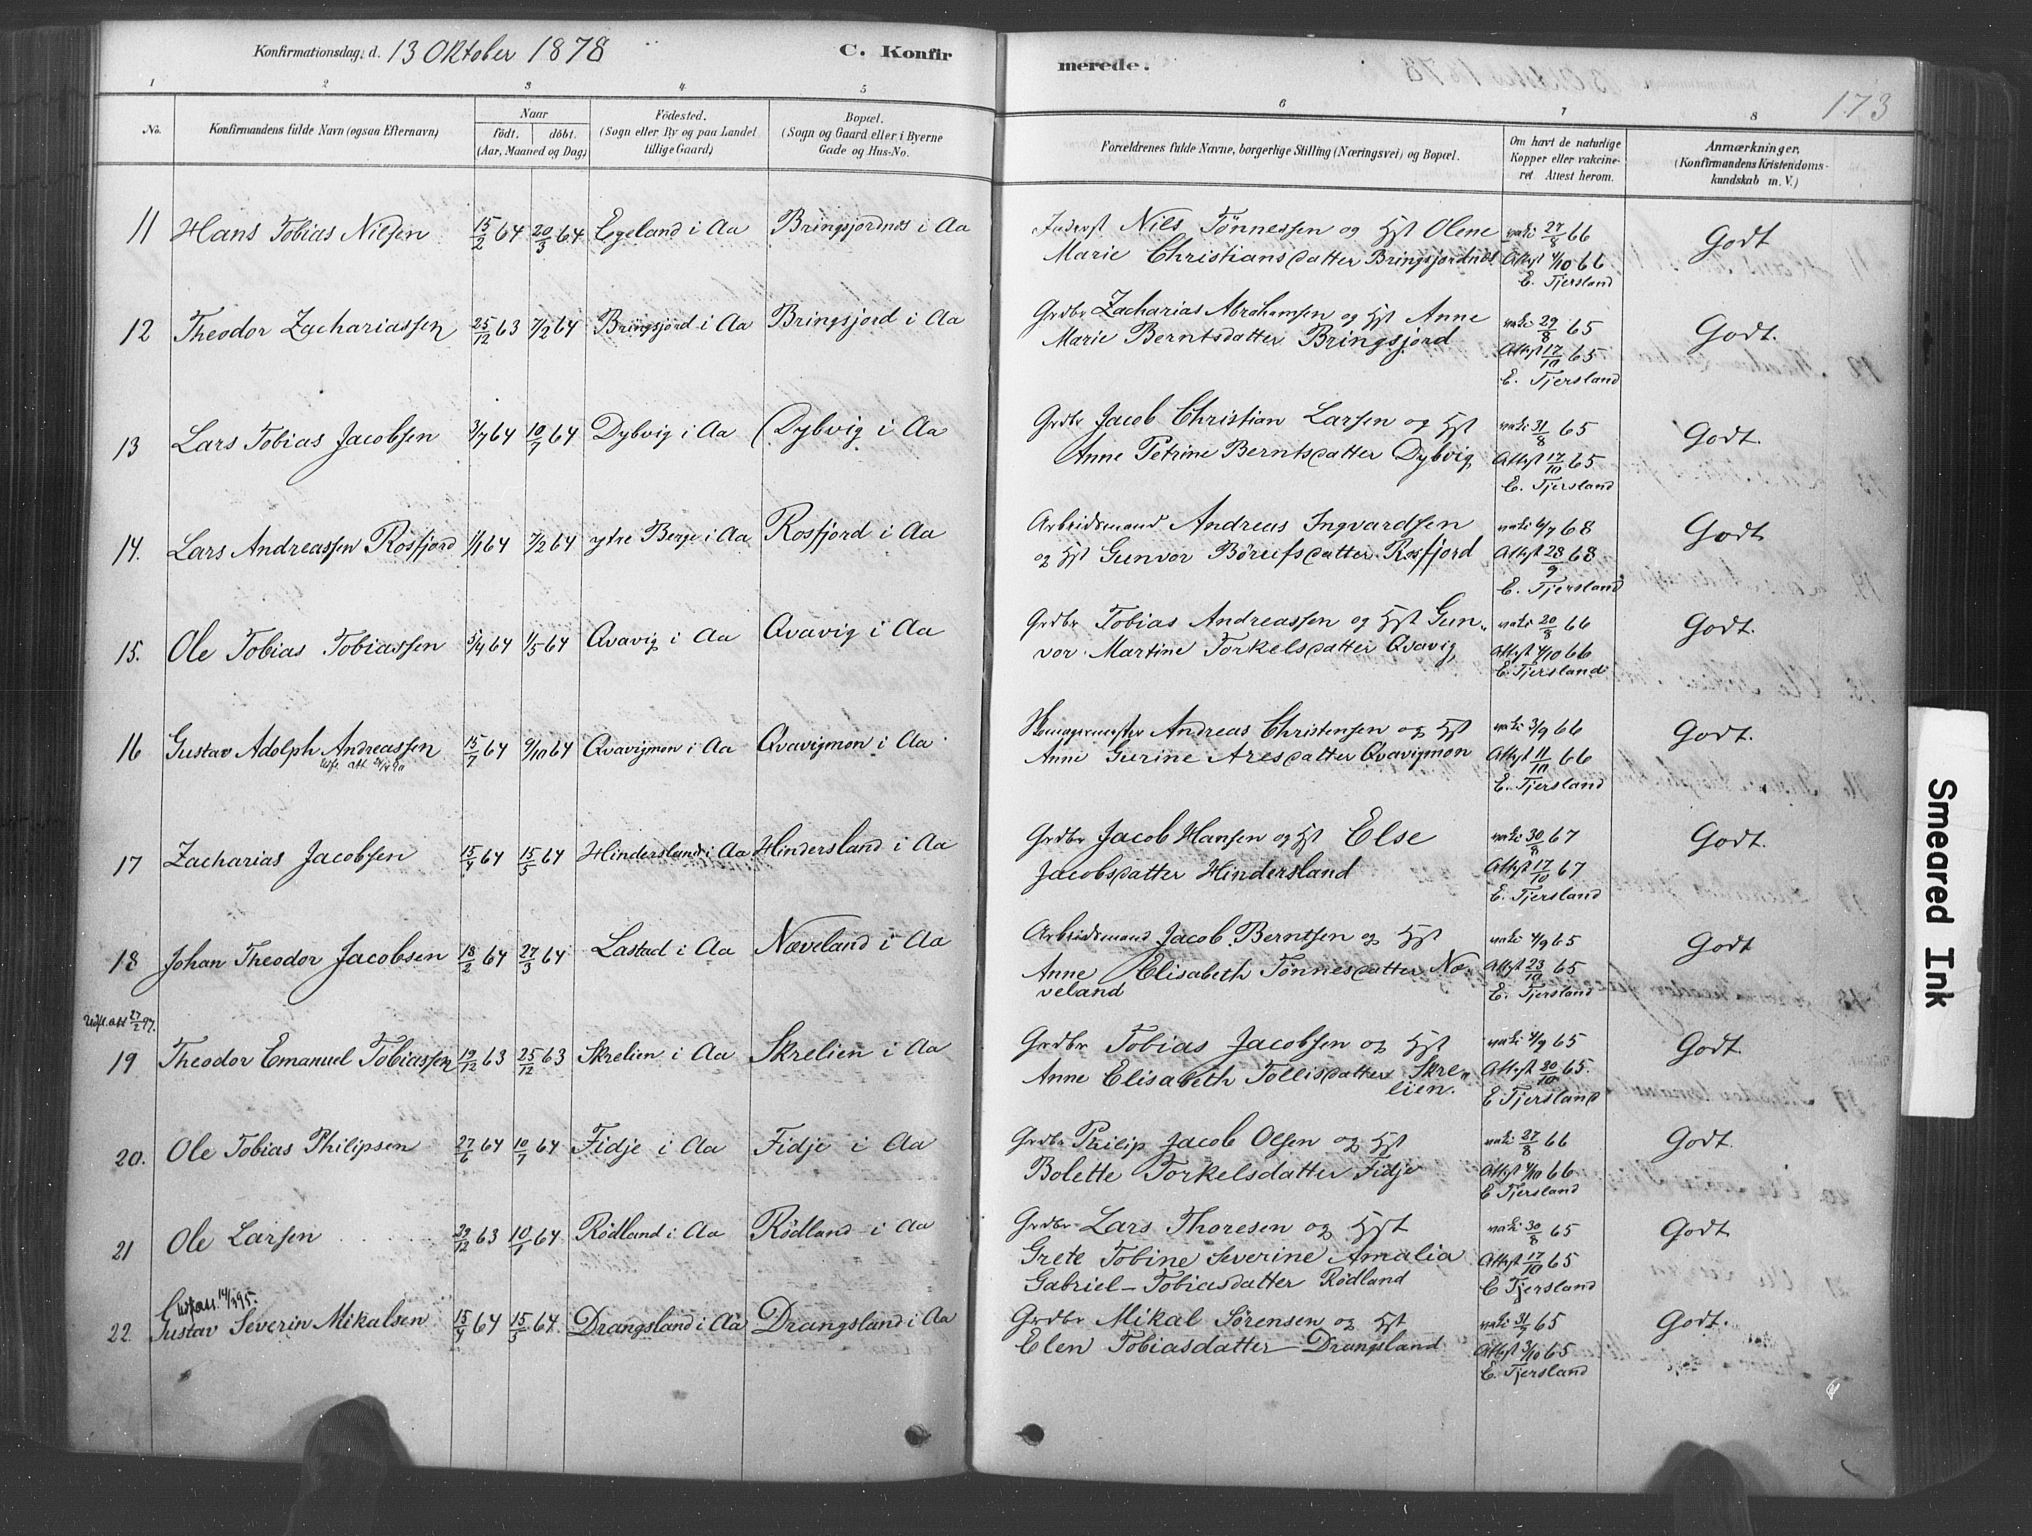 Konfirmationsdag: d. 13 Oktober 1878
C. Konfirmerede.
173
1 2 3 4 5 6 7 8
No.
Konfirmandens fulde Navn (ogsaa Efternavn)
Naar
födt. döbt.
(Aar, Maaned og Dag)
Födested.
(Sogn eller By og paa Landet
tillige Gaard)
Bopæl.
(Sogn og Gaard eller i Byerne
Gade og Hus-No.
Forældrenes fulde Navne, borgerlige Stilling (Næringsvei) og Bopæl.
Om havt de naturlige
Kopper eller vakcine-
ret Attest herom.
Anmærkninger,
(Konfirmandens Kristendoms-
kundskab m. V.)
11 Hans Tobias Nilsen 15/2 64 20/3 64 Egeland i Aa Bringsjordnes i Aa Nils Tønnessen og Hst Olene vaki 27/8 66 Godt
Marie Christiansdatter Bringsjordnes Attest 4/10 66
E. Tjersland
12 Theodor Zachariassen 25/12 63 7/2 64 Bringsjord i Aa Bringsjord i Aa Grdbr Zacharias Abrahamsen og Hst Anne vaki 29/8 65 Godt.
Marie Berntsdatter Bringsjord Attest 17/10 65
E. Tjersland
13 Lars Tobias Jacobsen 3/7 64 10/7 64 Dybvig i Aa Dybvig i Aa Grdbr Jacob Christian Larsen og Hst vaki 31/8 65 Godt.
Anne Petrine Berntsdatter Dybvig Attest 17/10 65
E. Tjersland
14. Lars Andreassen Rosfjord 1/1 64 7/2 64 ytre Berge i Aa Rosfjord i Aa Arbeidsmand Andreas Ingvardsen vaki 6/7 68 Godt
og Hst Gunvor Børufsdatter Rosfjord Attest 28/9 68
E. Tjersland
15. Ole Tobias Tobiassen 5/4 64 1/5 64 Qvavig i Aa Qvavig i Aa Grdbr Tobias Andreassen og Hst Gun- vaki 20/8 66 Godt.
vor Martine Torkelsdatter Qvavig Attest 4/10 66
E. Tjersland
16 Gustav Adolph Andreassen 15/7 64 9/10 64 Qvavigmon i Aa Qvavigmon i Aa Andreas Christensen og Hst vaki 3/9 66 Godt.
Anne Gurine Aresdatter Qvavigmon Attest 11/10 66
E. Tjersland
17 Zacharias Jacobsen 15/4 64 15/5 64 Hindersland i Aa Hindersland i Aa Grdbr Jacob Hansen og Hst Else vaki 30/8 67 Godt.
Jacobsdatter Hindersland Attest 17/10 67
E. Tjersland
18 Johan Theodor Jacobsen 18/2 64 27/3 64 Lastad i Aa Næveland i Aa Arbeidsmand Jacob Berntsen og Hst vaki 4/9 65 Godt
Anne Elisabeth Tønnesdatter Næ- Attest 23/10 65
veland E. Tjersland
Udfl. att 27/2 97.
19 Theodor Emanuel Tobiassen 19/12 63 25/12 63 Skrelien i Aa Skrelien i Aa Grdbr Tobias Jacobsen og Hst vaki 4/9 65 Godt
Anne Elisabeth Tollisdatter Skre- Attest 20/10 65.
lien. E Tjersland
20. Ole Tobias Philipsen 27/6 64 10/7 64 Fidje i Aa Fidje i Aa Grdbr Philip Jacob Olsen og Hst vaki 27/8 66 Godt.
Bolette Torkelsdatter Fidje Attest 4/10 66
E Tjersland
21 Ole Larsen 29/12 63 10/1 64 Rødland i Aa Rødland i Aa Grdbr Lars Thoresen og Hst vaki 30/8 65 Godt
Grete Tobine Severine Amalia Attest 17/10 65
Gabriel-Tobiasdatter Rødland E Tjersland
22. Gustav Severin Mikalsen 15/4 64 15/5 64. Drangsland i Aa Drangsland i Aa Grdbr Mikal Sørensen og Hst vaki 31/7 65 Godt.
Elen Tobiasdatter Drangsland Attest 3/10 65
E. Tjersland
Smeared Ink